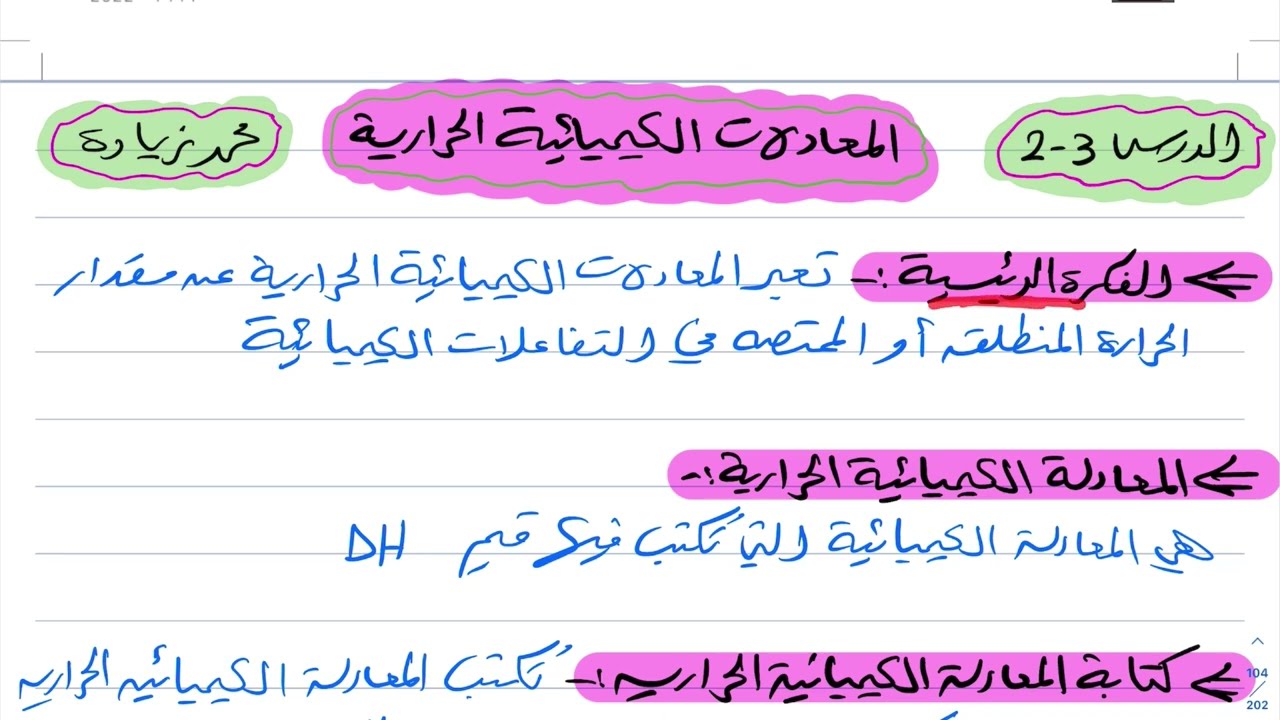 الدرس 3-2 المعادلات الكيميائية الحرارية محمد زيادة
⇐ الفكرة الرئسية :- تعبر المعادلات الكيميائية الحرارية عن مقدار
الحرارة المنطلقه أو الممتصه في التفاعلات الكيميائية
⇐ المعادلة الكيميائية الحرارية :-
هي المعادلة الكيميائية التي تُكتب فيها قيم ΔH
⇐ كتابة المعادلة الكيميائية الحراريه :- تُكتب المعادلة الكيميائيه الحراريه
104
202